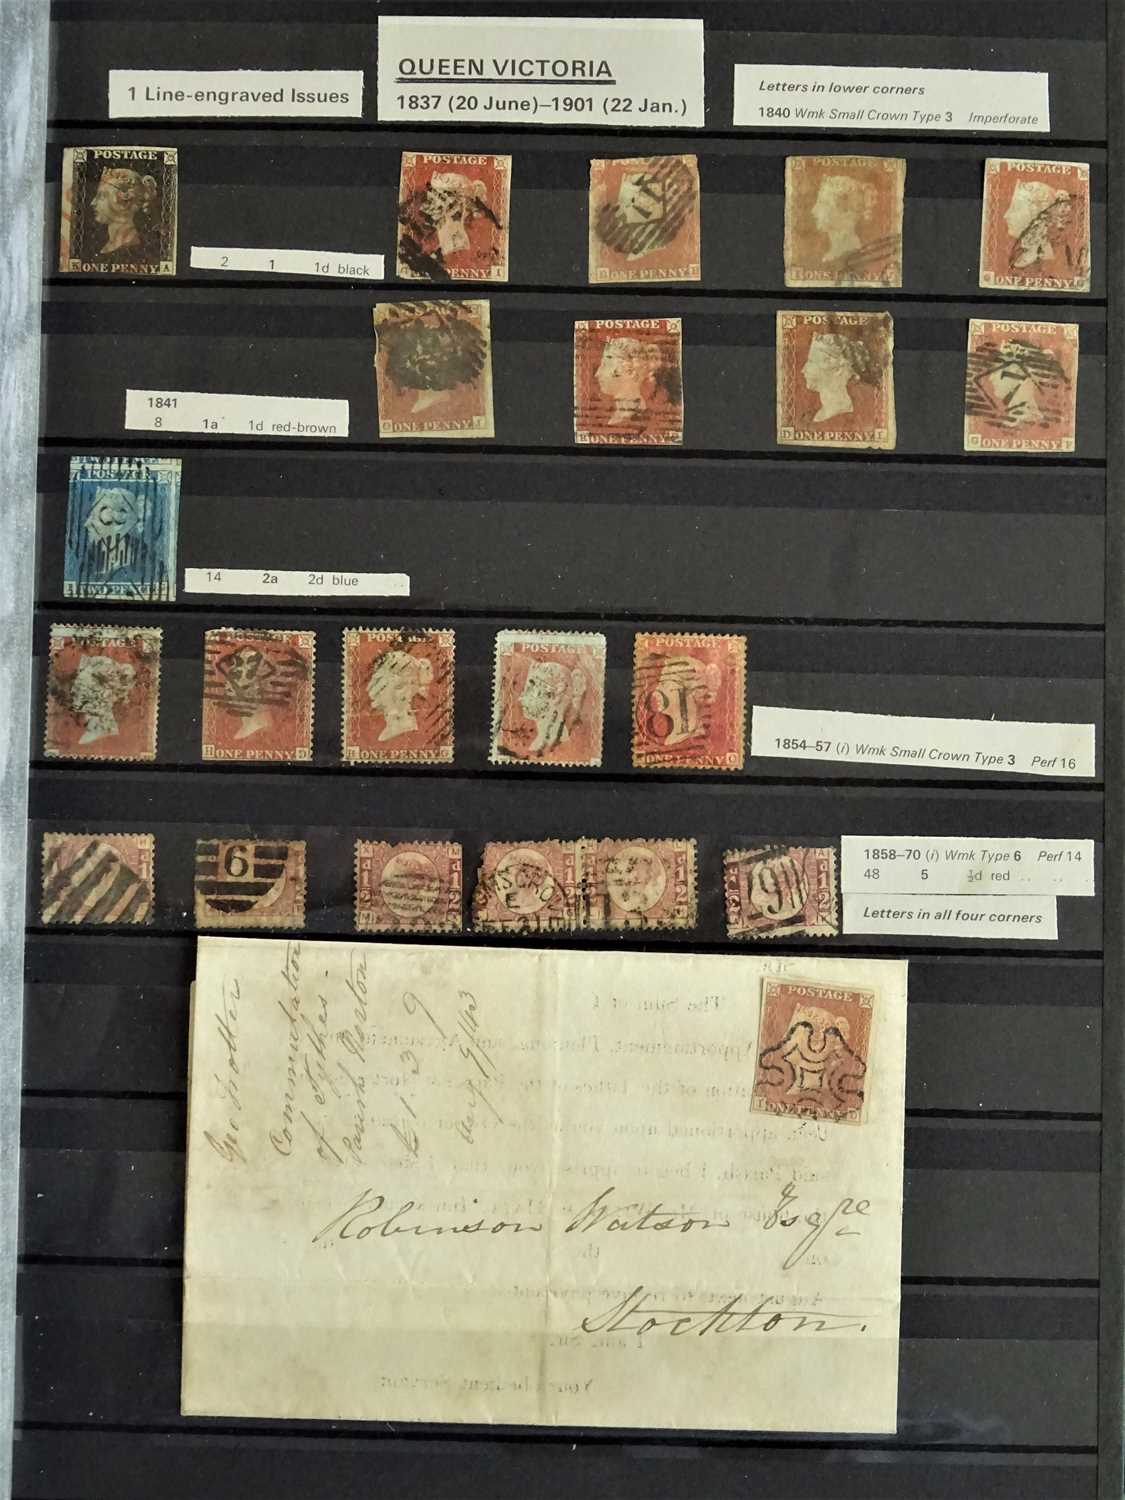 1 Line-engraved Issues
QUEEN VICTORIA
1837 (20 June)–1901 (22 Jan.)
Letters in lower corners
1840 Wmk Small Crown Type 3 Imperforate
POSTAGE
K ONE PENNY A
2 1 1d black
POSTAGE
PENNY I
ONE PENNY
POSTAGE
ONE PENNY
POSTAGE
ONE PENNY
1841
8 1a 1d red-brown
ONE PENNY
POSTAGE
ONE PENNY
POSTAGE
D ONE PENNY I
G ONE PENNY F
POSTAGE
TWO PENCE
14 2a 2d blue
POSTAGE
ONE PENNY
H ONE PENNY D
POSTAGE
ONE PENNY
POSTAGE
ONE PENNY
POSTAGE
18
ONE PENNY
1854–57 (i) Wmk Small Crown Type 3 Perf 16
6
1858–70 (i) Wmk Type 6 Perf 14
48 5 ½d red
Letters in all four corners
POSTAGE
I ONE PENNY D
Commutation
of Tythes
Parish Norton
£1. 3. 9
Robinson Watson Esqre
Stockton.